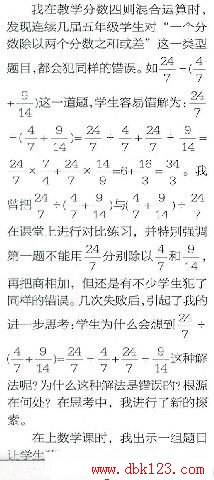 我在教学分数四则混合运算时,
发现连续几届五年级学生对“一个分
数除以两个分数之和或差”这一类型
题目,都会犯同样的错误。如24/7÷(4/7
+9/14)这一道题,学生容易错解为:24/7
÷(4/7+9/14)=24/7÷4/7+24/7÷9/14=
24/7×7/4+24/7×14/9=6+16/3=34/3。我
曾把24/7÷(4/7+9/14)与(4/7+9/14)÷24/7
在课堂上进行对比练习,并特别强调
第一题不能用24/7分别除以4/7和9/14,
再把商相加,但还是有不少学生犯了
同样的错误。几次失败后,引起了我的
进一步思考:学生为什么会想到24/7÷
(4/7+9/14)=24/7÷4/7+24/7÷9/14这种解
法呢?为什么这种解法是错误的?根源
在何处?在思考中,我进行了新的探
索。
在上数学课时,我出示一组题口
让学生
www.dbk123.com